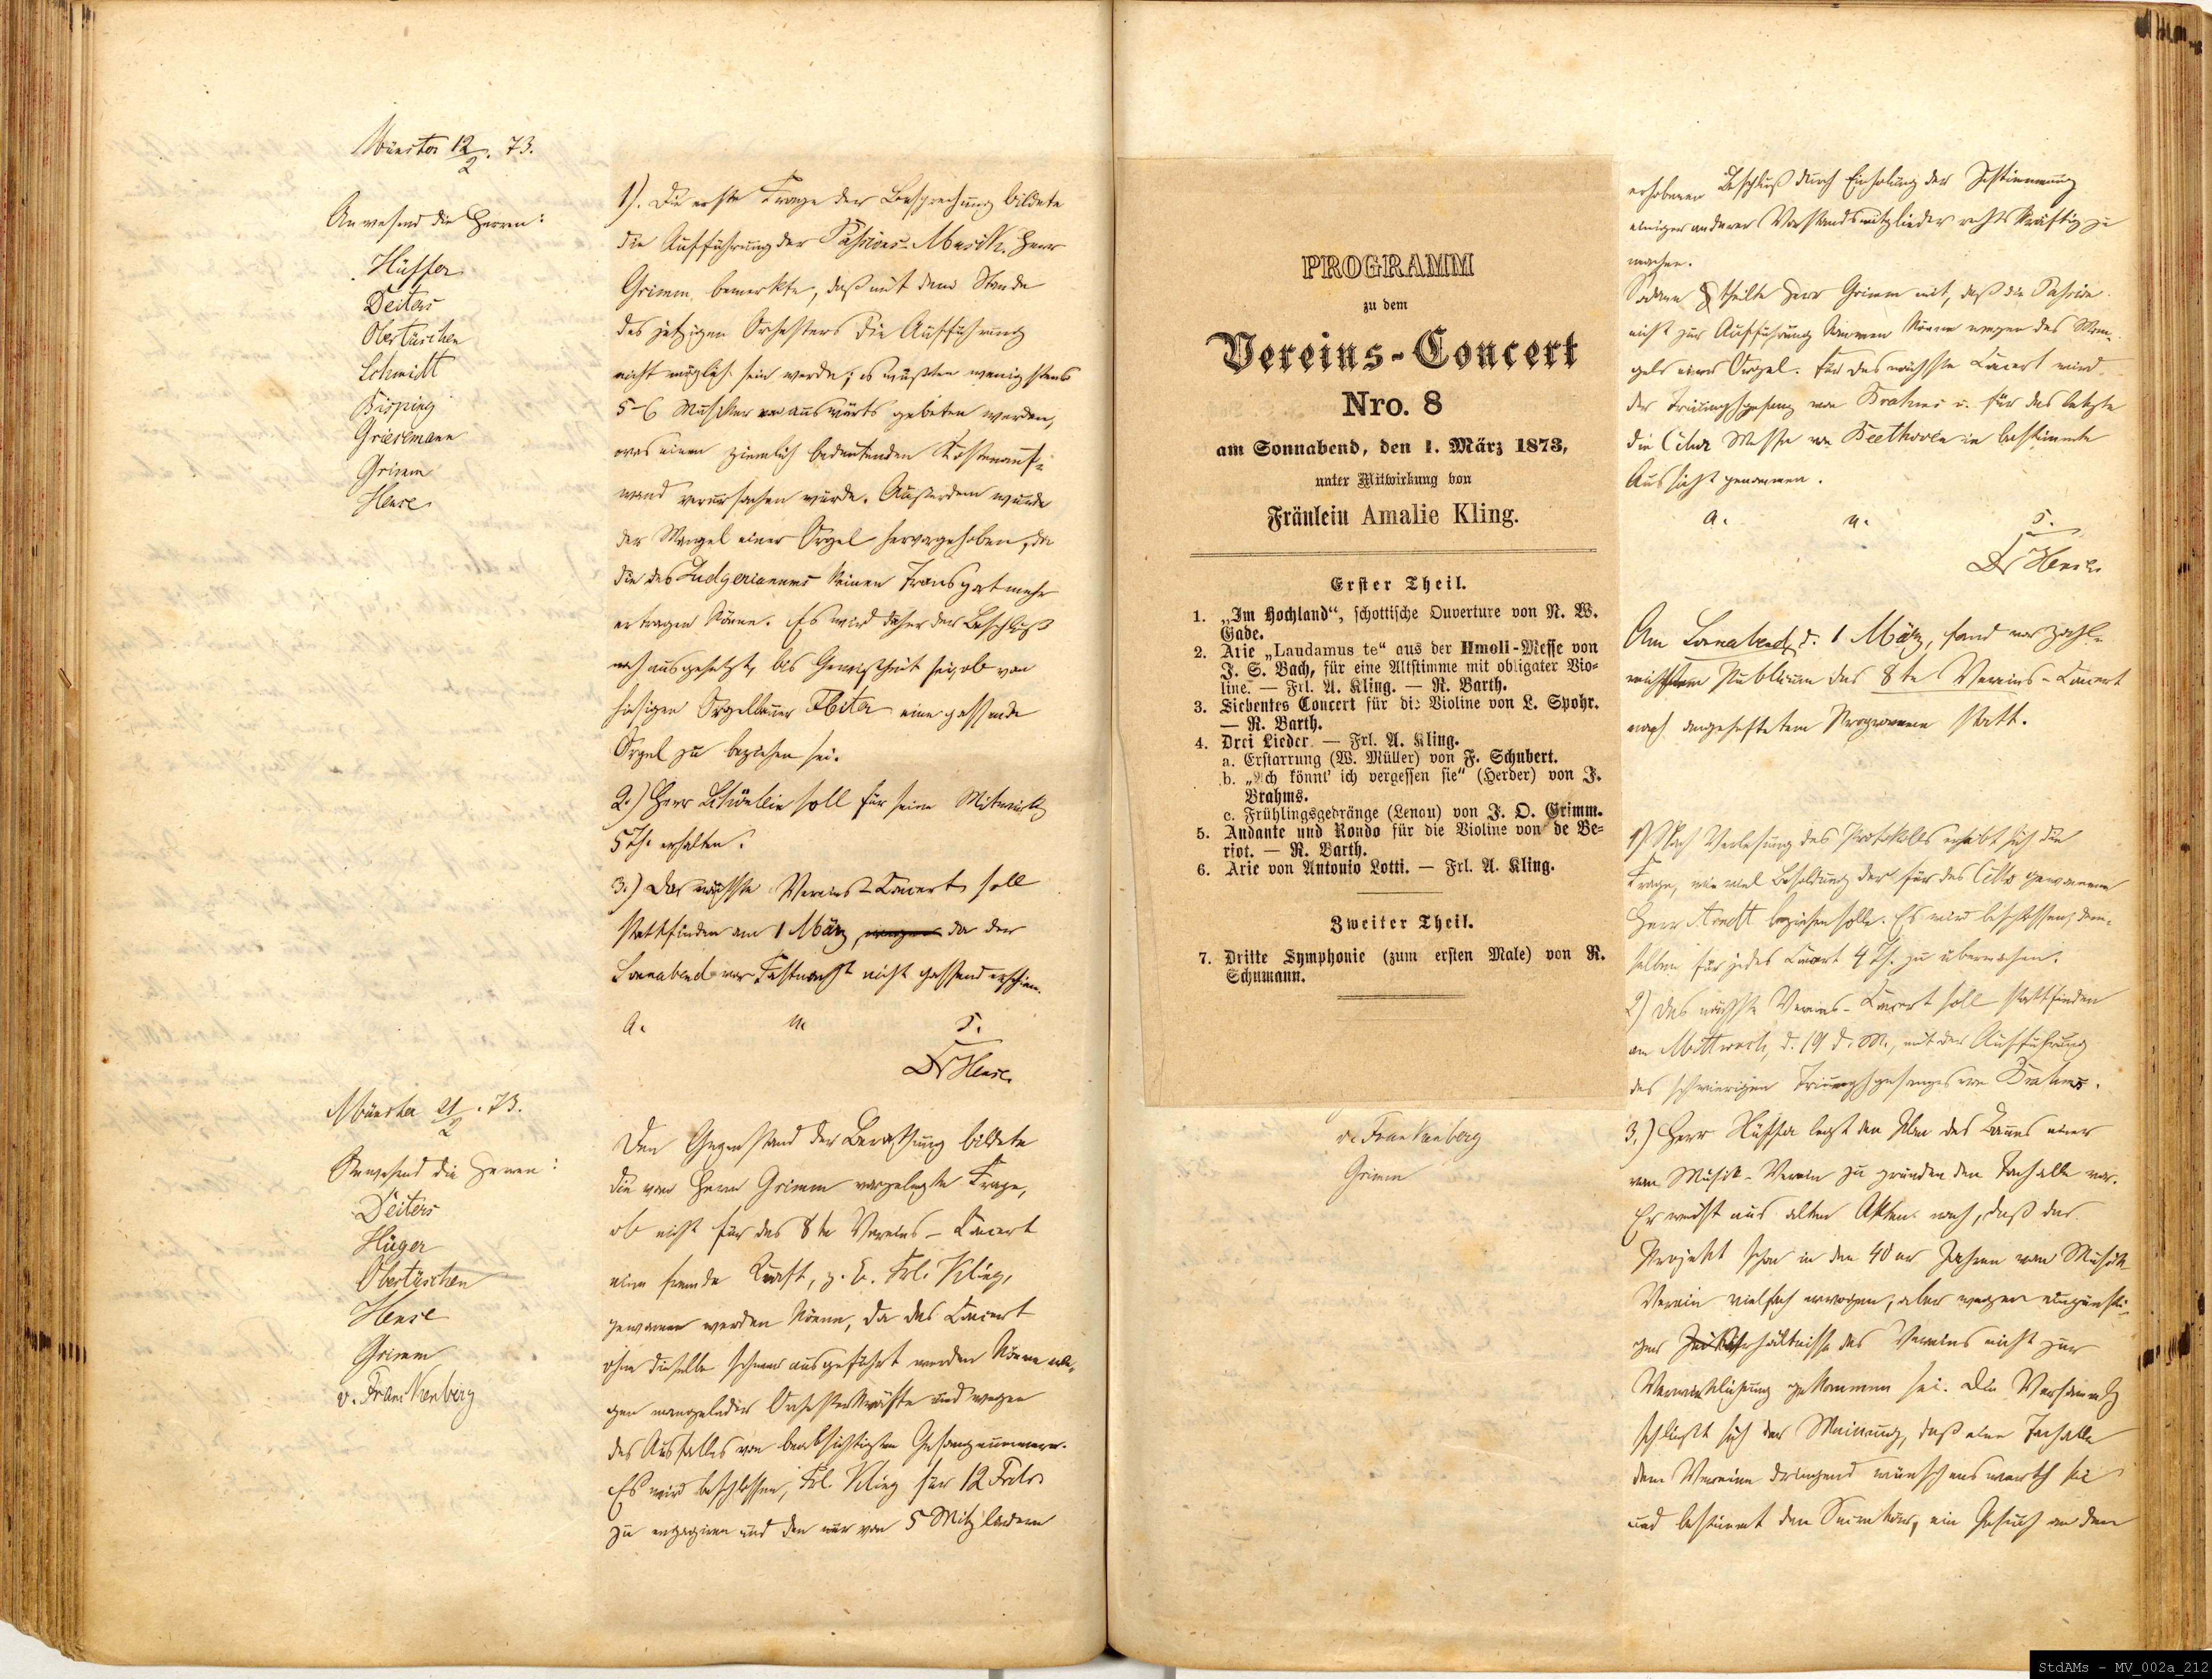 Münster 12/2. 73.
Anwesend die Herren:
Hüffer
Deiters
Obertüschen
Schmidt
Bisping
Grieskmann
Grimm
Hense
1). Die erste Frage der Besprechung bildete
die Aufführung der Passions-Musik. Herr
Grimm bemerkte, daß mit dem Stande
des jetzigen Orchesters die Aufführung
nicht möglich sein werde; es müßten wenigstens
5-6 Musiker von auswärts gebeten werden,
was einen ziemlich bedeutenden Kostenauf-
wand verursachen würde. Außerdem wurde
der Mangel einer Orgel hervorgehoben, da
die des Ludgerianums keinen Transport mehr
ertragen könne. Es wird daher der Beschluß
noch ausgesetzt, bis Gewißheit sei, ob von
hiesigen Orgelbauer eine passende
Orgel zu beziehen sei.
2.) Herr soll für seine Mitwirkg
5 Th. erhalten.
3.) Das nächste Vereins-Concert soll
stattfinden am 1 März, wegen da der
Sonnabend vor Fastnacht nicht passend erschien.
a. u. s.
Dr Hense.
Münster 21/2. 73.
Anwesend die Herren:
Deiters
Hüger
Obertüschen
Hense
Grimm
v. Frankenberg
Den Gegenstand der Berathung bildete
die von Herrn Grimm vorgelegte Frage,
ob nicht für das 8te Vereins-Concert
eine fremde Kraft, z. B. Frl. Kling,
gewonnen werden könne, da das Concert
ohne dieselbe schwer ausgeführt werden könne we-
gen mangelnder Orchesterkräfte und wegen
des Ausfalles von beabsichtigten Gesangnummern.
Es wird beschlossen, Frl. Kling für 12 Frdr.
zu engagiren und den nur von 5 Mitgliedern
PROGRAMM
zu dem
Vereins-Concert
Nro. 8
am Sonnabend, den 1. März 1873,
unter Mitwirkung von
Fräulein Amalie Kling.
Erster Theil.
1. „Im Hochland“, schottische Ouverture von N. W.
Gade.
2. Arie „Laudamus te“ aus der Hmoll-Messe von
J. S. Bach, für eine Altstimme mit obligater Vio-
line. — Frl. A. Kling. — R. Barth.
3. Siebentes Concert für die Violine von L. Spohr.
— R. Barth.
4. Drei Lieder. — Frl. A. Kling.
a. Erstarrung (W. Müller) von F. Schubert.
b. „Ach könnt' ich vergessen sie“ (Herder) von J.
Brahms.
c. Frühlingsgedränge (Lenau) von J. O. Grimm.
5. Andante und Rondo für die Violine von de Be-
riot. — R. Barth.
6. Arie von Antonio Lotti. — Frl. A. Kling.
Zweiter Theil.
7. Dritte Symphonie (zum ersten Male) von R.
Schumann.
v. Frankenberg
Grimm
erhobenen Beschluß durch Einholung der Zustimmung
einiger anderer Vorstandsmitglieder rechtskräftig zu
machen.
Sodann theilte Herr Grimm mit, daß die Passion
nicht zur Aufführung kommen könne wegen des Man-
gels einer Orgel. Für das nächste Concert wird
der Triumphgesang von Brahms u. für das letzte
die Cdur Messe von Beethoven in bestimmte
Aussicht genommen.
a. u. s.
Dr Hense.
Am Sonnabend, d. 1 März, fand vor zahl-
reichstem Publicum das 8te Vereins-Concert
nach angeheftetem Programm statt.
1) Nach Verlesung des Protokolls erhebt sich die
Frage, wie viel Besoldung der für das Cello gewonnene
Herr Arndt beziehen solle. Es wird beschlossen, dem-
selben für jedes Concert 4 Th. zu überweisen.
2) Das nächste Vereins-Concert soll stattfinden
am Mittwoch, d. 19 d. M., mit der Aufführung
des schwierigen Triumphgesanges von Brahms.
3.) Herr Hüffer legt den Plan des Baues einer
vom Musik-Verein zu gründenden Tonhalle vor.
Er weist aus alten Akten nach, daß das
Projekt schon in den 40er Jahren vom Musik
Verein vielfach erwogen, aber wegen ungünsti-
ger Zeitverhältnisse des Vereins nicht zur
Verwirklichung gekommen sei. Die Versammlg
schließt sich der Meinung, daß eine Tonhalle
dem Vereine dringend wünschenswerth sei
und bestimmt den Secretär, ein Gesuch an den
StdAMs - MV_002a_212